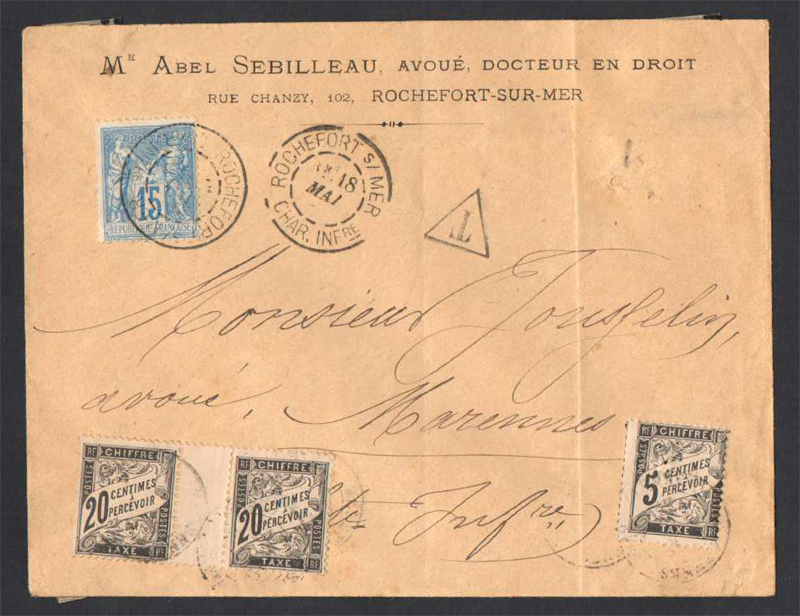 Mᴱ ABEL SEBILLEAU, AVOUÉ, DOCTEUR EN DROIT
RUE CHANZY, 102, ROCHEFORT-SUR-MER
15
RÉPUBLIQUE FRANÇAISE
ROCHEFORT
ROCHEFORT S/ MER
18
MAI
CHAR. INFRE
T
Monsieur Jousselin,
avoué, Marennes
Infre
POSTES RF CHIFFRE
20 CENTIMES À PERCEVOIR
POSTES
TAXE RF
POSTES RF CHIFFRE
20 CENTIMES À PERCEVOIR
POSTES
TAXE RF
POSTES RF CHIFFRE
5 CENTIMES À PERCEVOIR
POSTES
TAXE RF